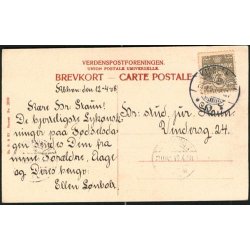 VERDENSPOSTFORENINGEN.
UNION POSTALE UNIVERSELLE.
BREVKORT – CARTE POSTALE
den 12-4-08
Kære Hr. Braun!
De hjerteligste Lykønsk-
ninger paa Fødselsda-
gen Dem fra
mine Forældre, Aage
og Deres hengv.
Ellen
Hr. stud. jur. Braun
Vendersg. 24.